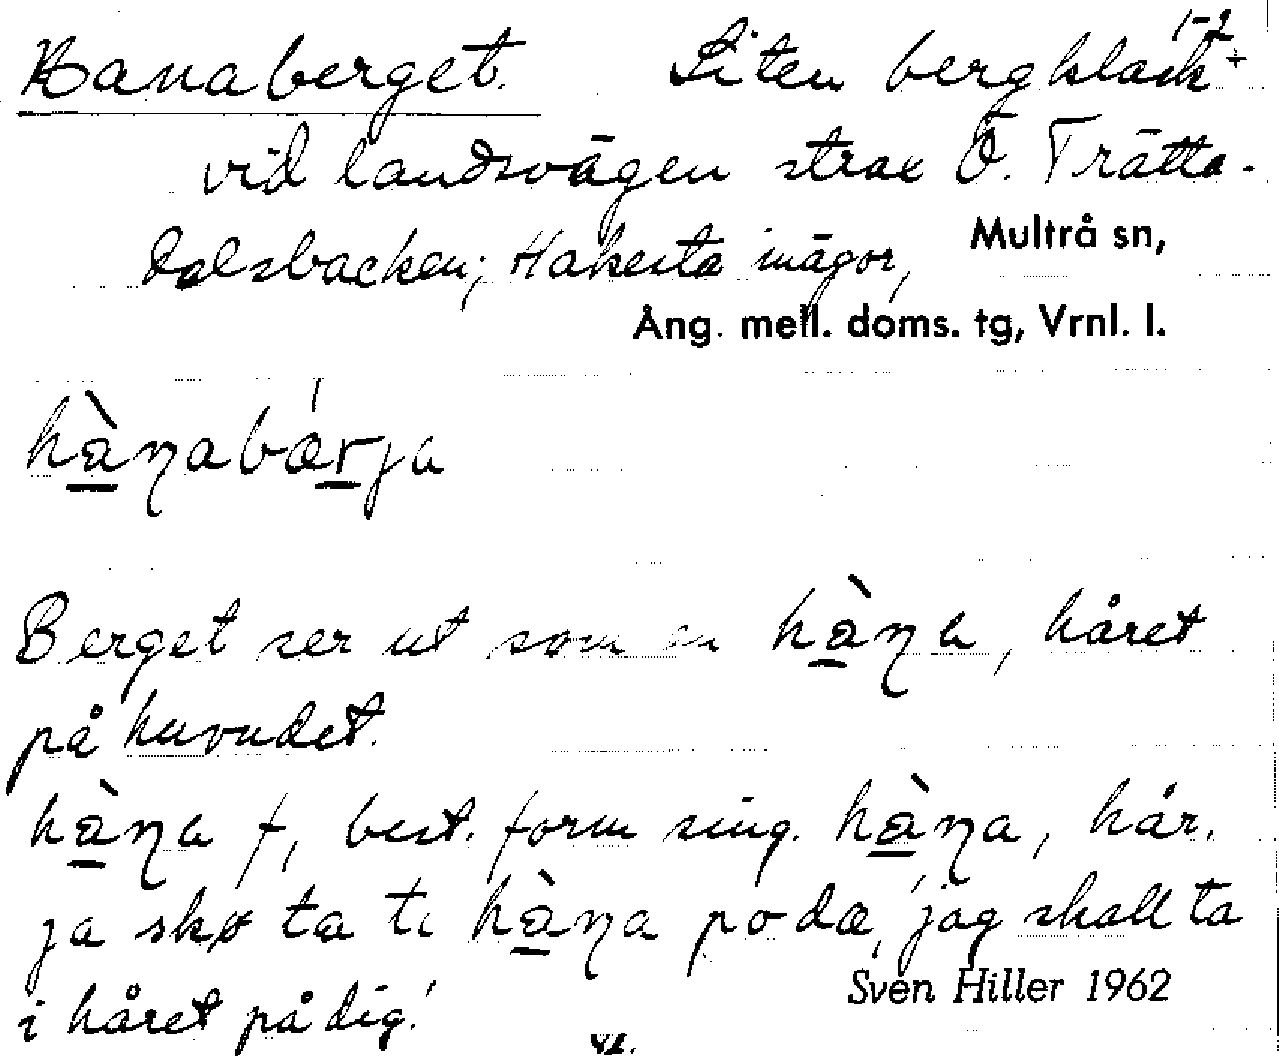 Hanaberget. Liten bergklack 1-2 +
vid landsvägen strax Ö. Trätta-
dalsbacken; Hakesta inägor, Multrå sn,
Ång. mell. doms. tg, Vrnl. l.
hàꞑabærja
Berget ser ut som en hàꞑa, håret
på huvudet.
hàꞑa f, best. form sing. hàꞑa, hår.
ja skø ta ti hàꞑa po dæ, jag skall ta
i håret på dig!
Sven Hiller 1962